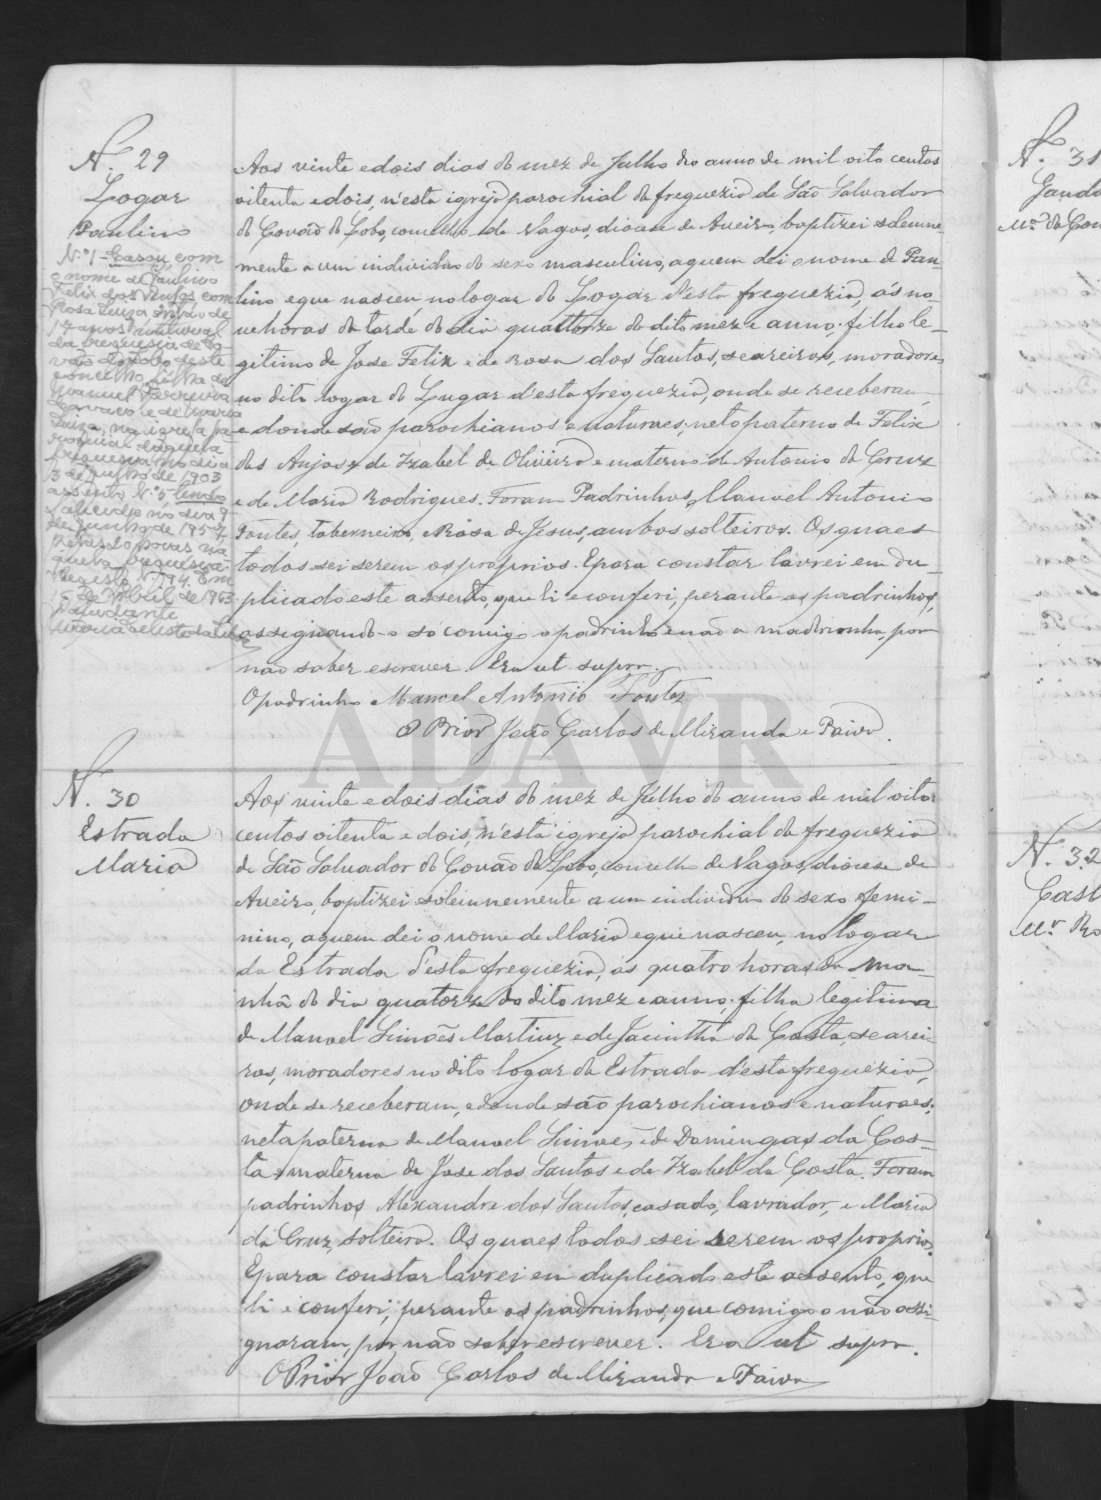 Nº 29
Logar
Paulino
Nº 1 - Casou com
o nome de Paulino
Felix dos Santos com
Rosa Luiza
17 anos natural
da freguesia de Co-
vão do Lobo deste
concelho, filha de
Manuel Ferreira
e de Maria
Luiza, na igreja pa-
roquial daquela
freguesia no dia
3 de de 1903
assento Nº 5 tendo
falecido no dia 9
de Junho de 1957
na
quela freguesia
Registo Nº 194. Em
16 de Abril de 1963
O ajudante
Aos vinte e dois dias do mez de Julho do anno de mil oito centos
oitenta e dois, n'esta igreja parochial da freguezia de São Salvador
do Covão do Lobo, concelho de Vagos, diocese de Aveiro, baptizei solemne-
mente a um individuo do sexo masculino, a quem dei o nome de Pau-
lino e que nasceu no logar do Logar d'esta freguezia, ás no-
ve horas da tarde do dia quattorze do dito mez e anno; filho le-
gitimo de Jose Felix e de Rosa dos Santos, seareiros, moradores
no dito logar do Lugar d'esta freguezia, onde se receberam,
e donde são parochianos e naturaes; neto paterno de Felix
dos Anjos e de Izabel de Oliveira e materno de Antonio da Cruz
e de Maria Rodrigues. Foram Padrinhos, Manoel Antonio
Fontes, taberneiro, e Rosa de Jesus, ambos solteiros. Os quaes
todos sei serem os proprios. E para constar lavrei em du-
plicado este assento, que li e conferi, perante os padrinhos,
assignando-o só comigo o padrinho e não a madrinha, por
não saber escrever. Era ut supra.
O padrinho Manoel Antonio Fontes
O Prior João Carlos de Miranda e Paiva.
ADAVR
N. 30
Estrada
Maria
Aos vinte e dois dias do mez de Julho do anno de mil oito
centos oitenta e dois, n'esta igreja parochial da freguezia
de São Salvador do Covão do Lobo, concelho de Vagos, diocese de
Aveiro, baptizei solemnemente a um individuo do sexo femi-
nino, a quem dei o nome de Maria e que nasceu, no logar
da Estrada d'esta freguezia, ás quatro horas da ma-
nhã do dia quatorze do dito mez e anno; filha legitima
de Manoel Simões Martins e de Jacintha da Costa, searei-
ros, moradores no dito logar da Estrada d'esta freguezia,
onde se receberam, e donde são parochianos e naturaes;
neta paterna de Manoel Simões e de Domingas da Cos-
ta e materna de Jose dos Santos e de Izabel da Costa. Foram
padrinhos Alexandre dos Santos, casado, lavrador, e Maria
da Cruz, solteira. Os quaes todos sei serem os proprios.
E para constar lavrei em duplicado este assento, que
li e conferi, perante os padrinhos, que comigo o não assi-
gnaram, por não saber escrever. Era ut supra.
O Prior João Carlos de Miranda e Paiva
N. 31
Ganda
Mª da Con
N. 32
Cast
Mª Ro